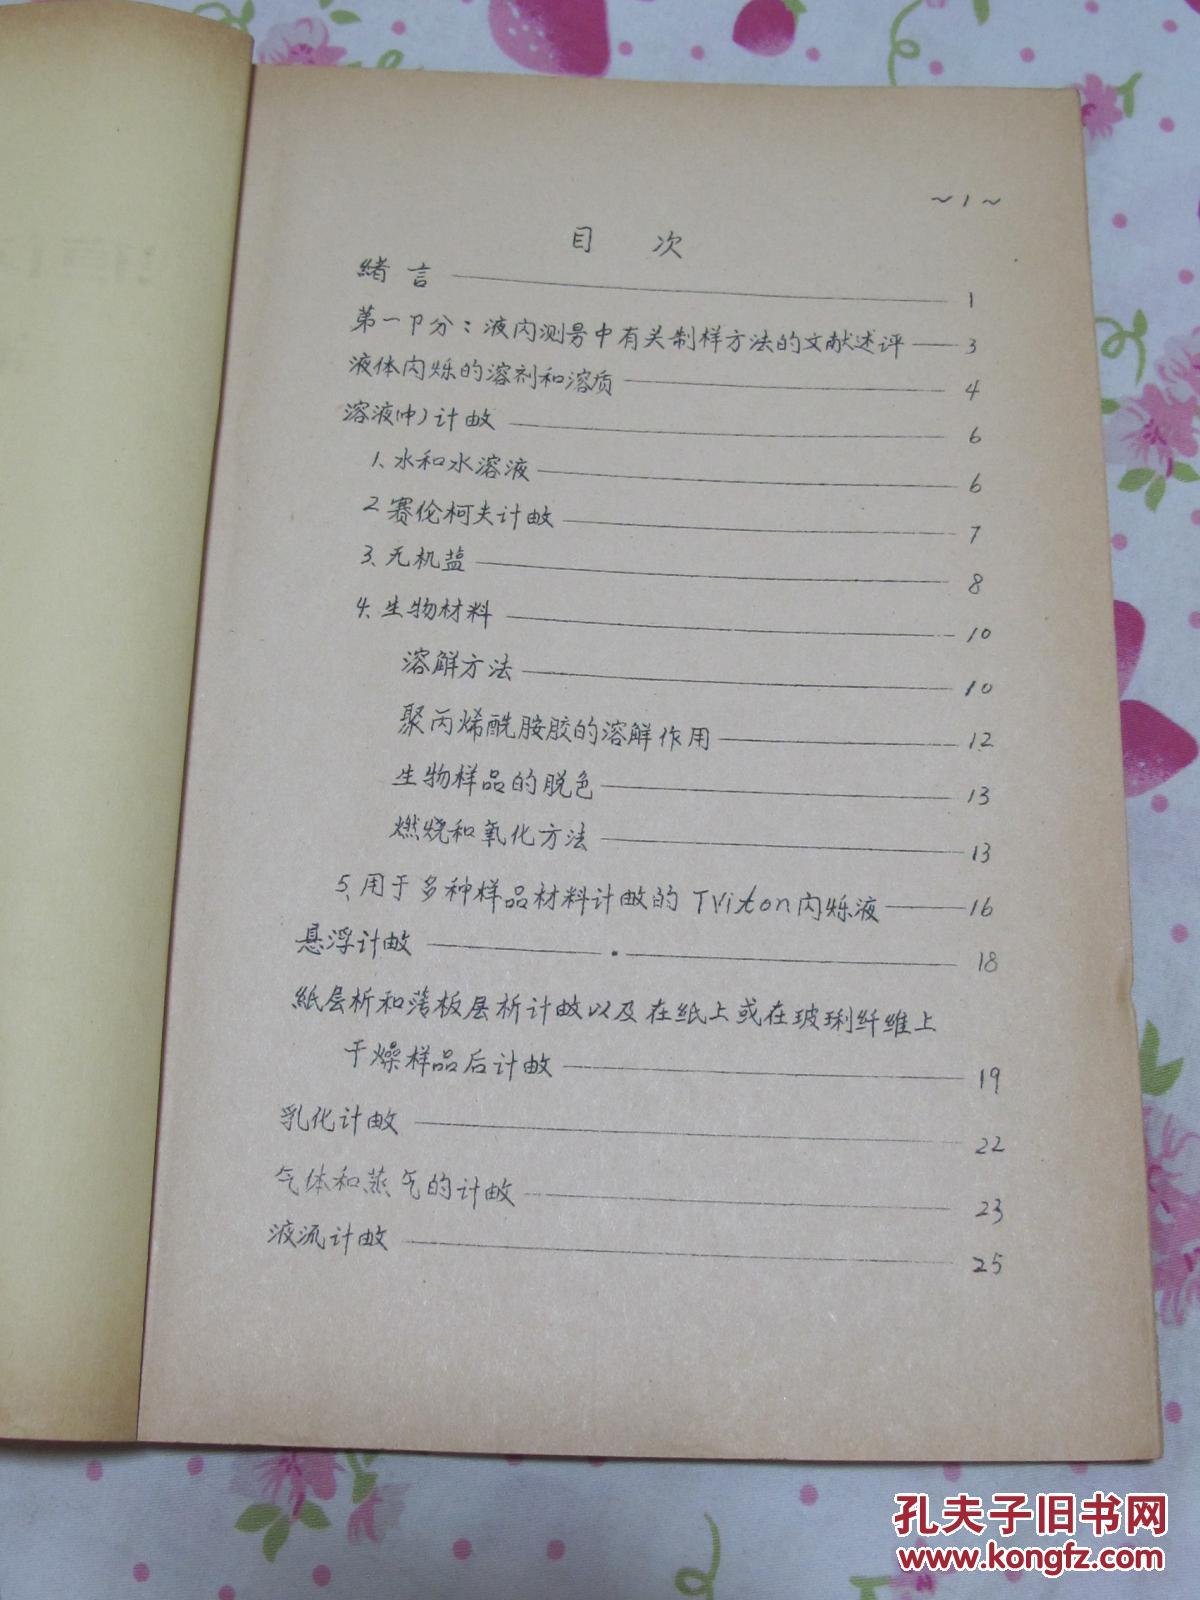 ~1~
目 次
緒言 1
第一卩分：液闪测量中有关制样方法的文献述评 3
液体闪烁的溶剂和溶质 4
溶液(中)计数 6
1、水和水溶液 6
2 赛伦柯夫计数 7
3、无机盐 8
4、生物材料 10
溶解方法 10
聚丙烯酰胺胶的溶解作用 12
生物样品的脱色 13
燃烧和氧化方法 13
5、用于多种样品材料计数的 Triton闪烁液 16
悬浮计数 18
紙层析和薄板层析计数以及在纸上或在玻琍纤维上
干燥样品后计数 19
乳化计数 22
气体和蒸气的计数 23
液流计数 25
孔夫子旧书网
www.kongfz.com